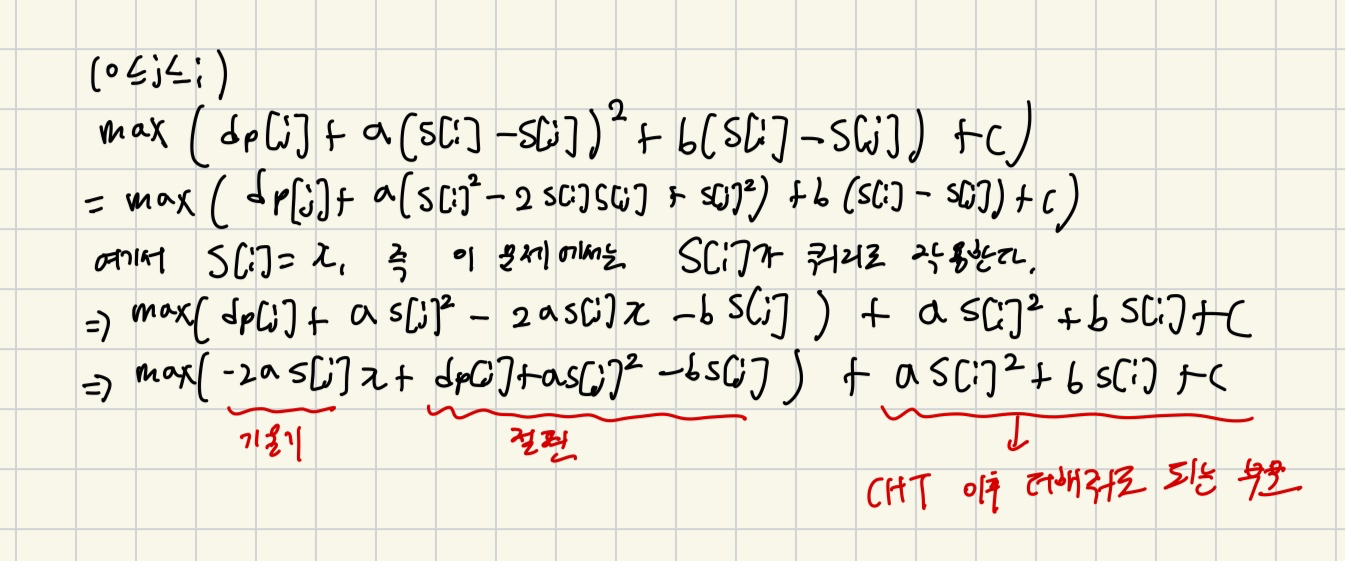 (0≤j≤i)
max ( dp[j] + a(S[i] - S[j])² + b(S[i] - S[j]) + c)
= max ( dp[j] + a(S[i]² - 2 S[i]S[j] + S[j]²) + b (S[i] - S[j]) + c)
여기서 S[i] = x, 즉 이 문제에서는 S[i]가 쿼리로 작용한다.
⇒ max( dp[j] + a S[j]² - 2 a S[j] x - b S[j] ) + a S[i]² + b S[i] + C
⇒ max( -2a S[j] x + dp[j] + aS[j]² - bS[j] ) + a S[i]² + b S[i] + c
기울기 절편
↓
CHT 이후 더해줘도 되는 부분